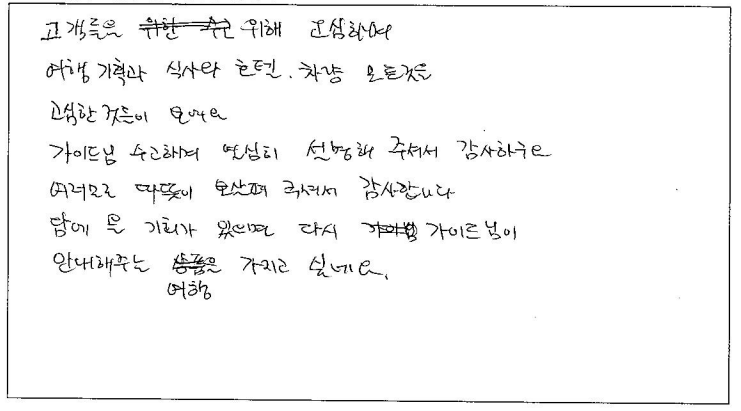 고객들을 위해 고심하여
여행 기획과 식사와 호텔, 차량 모든것을
고심한 것들이 보여요
가이드님 수고하며 열심히 설명해 주셔서 감사하구요
여러모로 따뜻이 보살펴 주셔서 감사합니다
담에 또 기회가 있으면 다시 가이드님이
안내해주는 가지고 싶네요.
여행